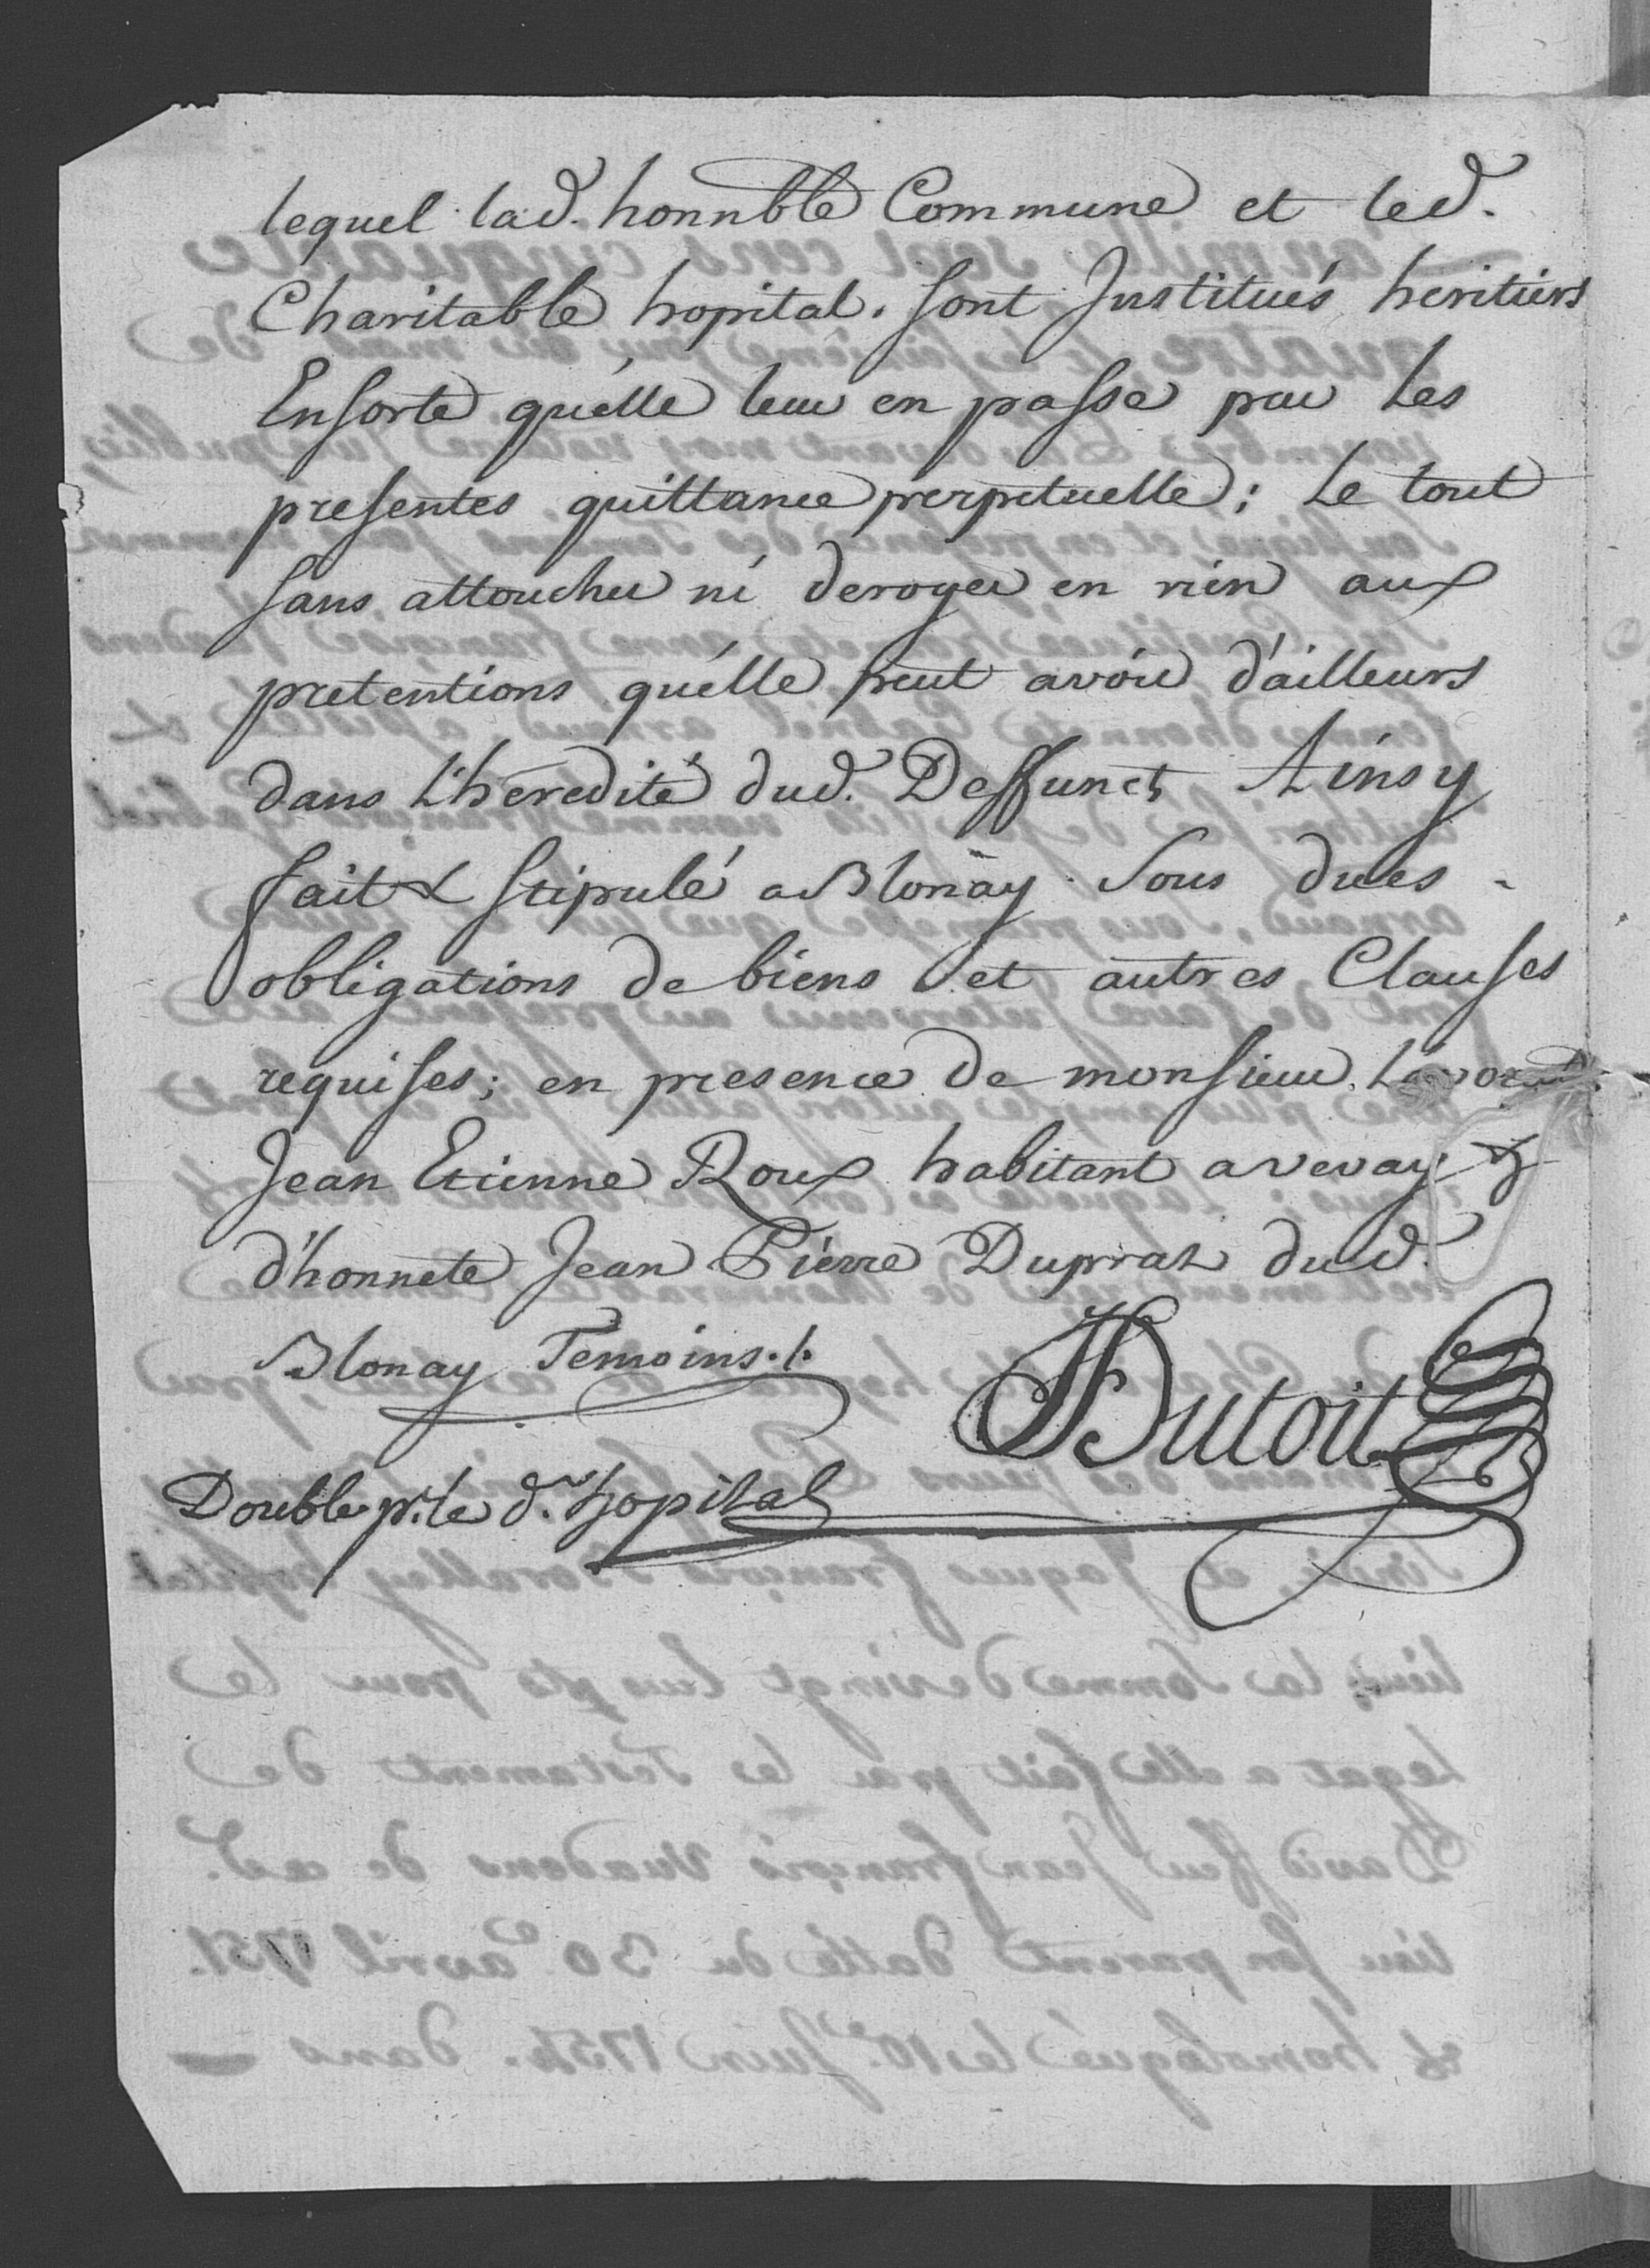 lequel lad. honnble Commune et led.
Charitable hopital. sont Institués heritiers
Ensorte qu'elle leur en passe par Les
presentes quittance perpetuelle; Le tout
sans attoucher ni deroger en rien aux
pretentions qu'elle peut avoir d'ailleurs
dans L'heredité dud. Deffunct Ainsy
fait & stipulé a Blonay sous dues
obligations de biens et autres Clauses
requises; en presence de monsieur
Jean Etienne Roux habitant a vevay &
d'honnete Jean Pierre Dupraz dud.
Blonay Temoins./.
Dutoit
Double pr. le d. hopital